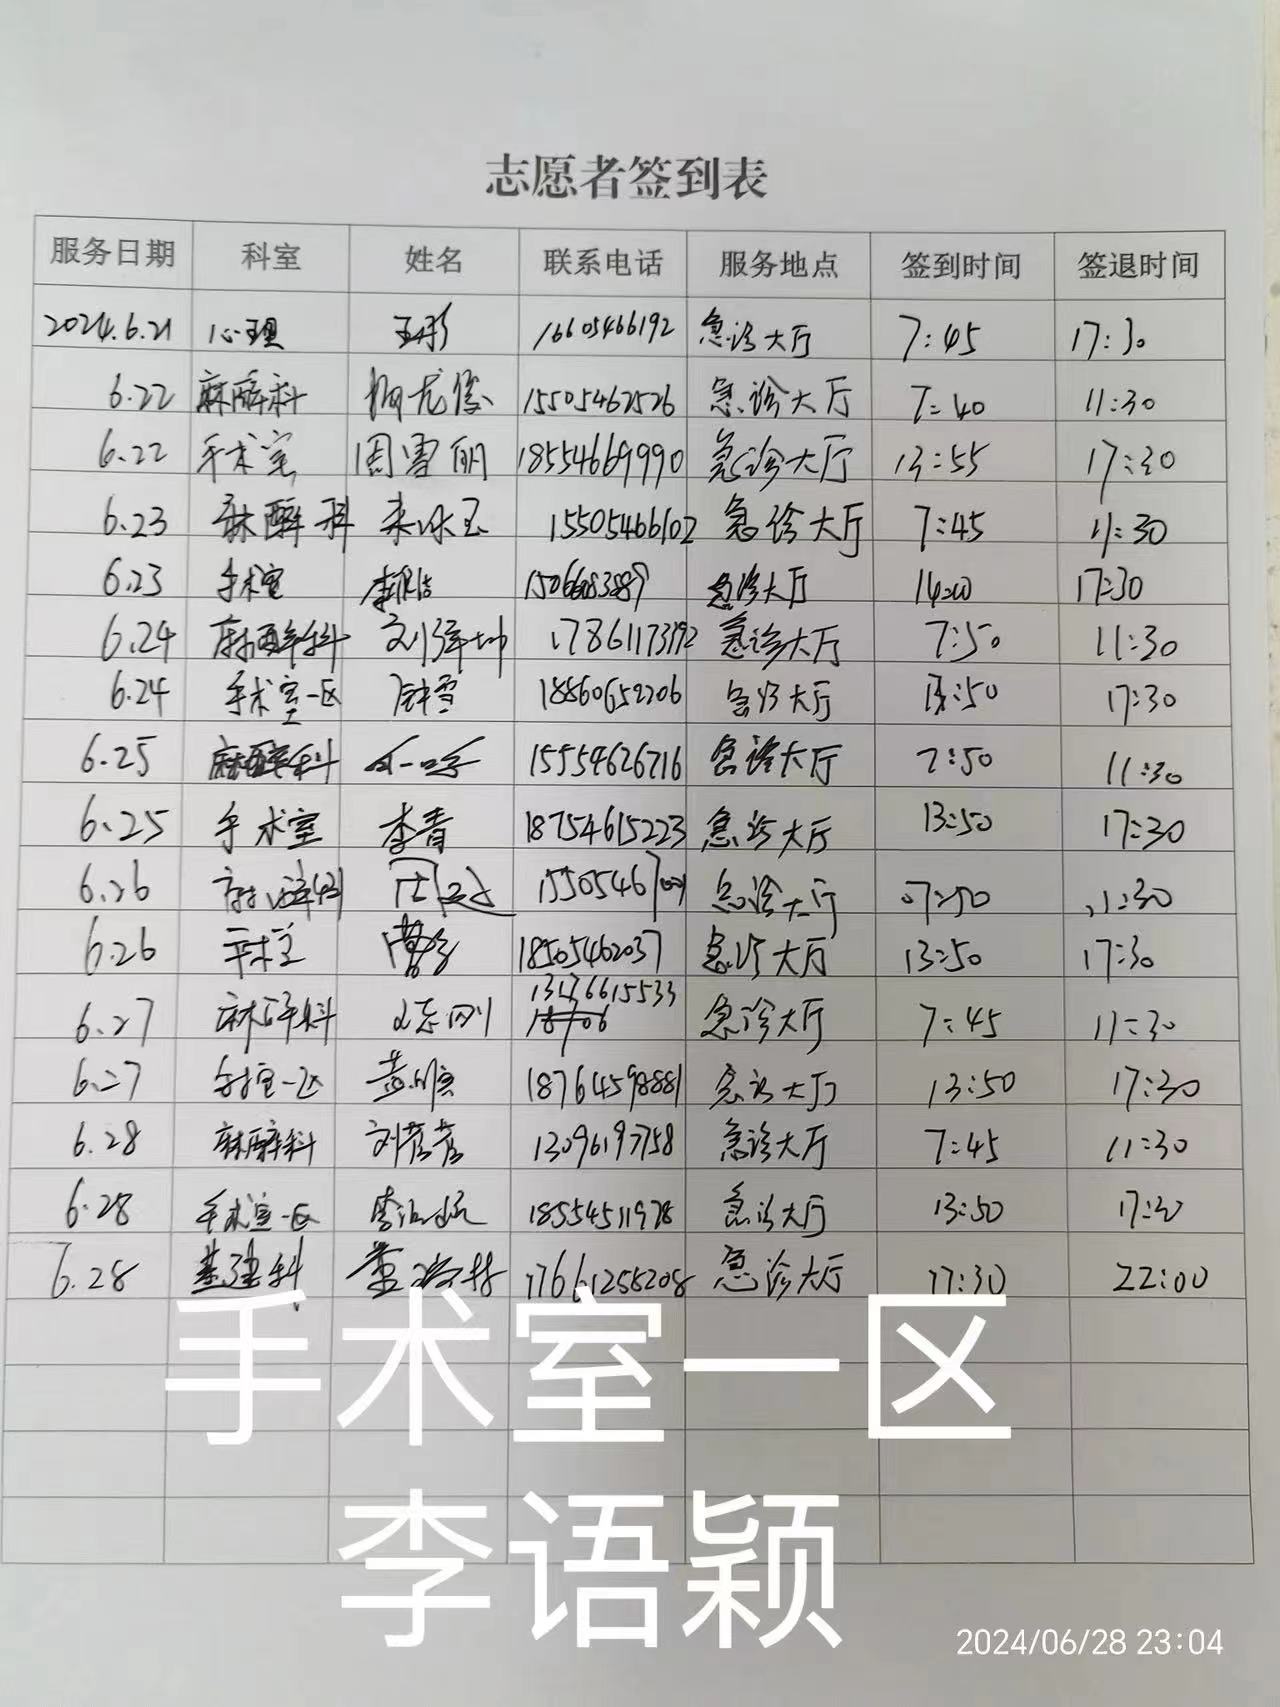 志愿者签到表
服务日期 科室 姓名 联系电话 服务地点 签到时间 签退时间
2024.6.21 心理 16605466192 急诊大厅 7:45 17:30
6.22 麻醉科 15505462526 急诊大厅 7:40 11:30
6.22 手术室 周雪丽 18554669990 急诊大厅 13:55 17:30
6.23 麻醉科 15505466102 急诊大厅 7:45 11:30
6.23 手术室 急诊大厅 14:00 17:30
6.24 麻醉科 17861173192 急诊大厅 7:50 11:30
6.24 手术室一区 18860659206 急诊大厅 13:50 17:30
6.25 麻醉科 15554626716 急诊大厅 7:50 11:30
6.25 手术室 李青 18754615223 急诊大厅 13:50 17:30
6.26 麻醉科 急诊大厅 07:50 11:30
6.26 手术室 18505462037 急诊大厅 13:50 17:30
6.27 麻醉科 急诊大厅 7:45 11:30
6.27 手术室一区 18764598881 急诊大厅 13:50 17:30
6.28 麻醉科 刘芳芳 13096197758 急诊大厅 7:45 11:30
6.28 手术室一区 18554511978 急诊大厅 13:50 17:30
6.28 基建科 17661258208 急诊大厅 17:30 22:00
手术室一区
李语颖
2024/06/28 23:04